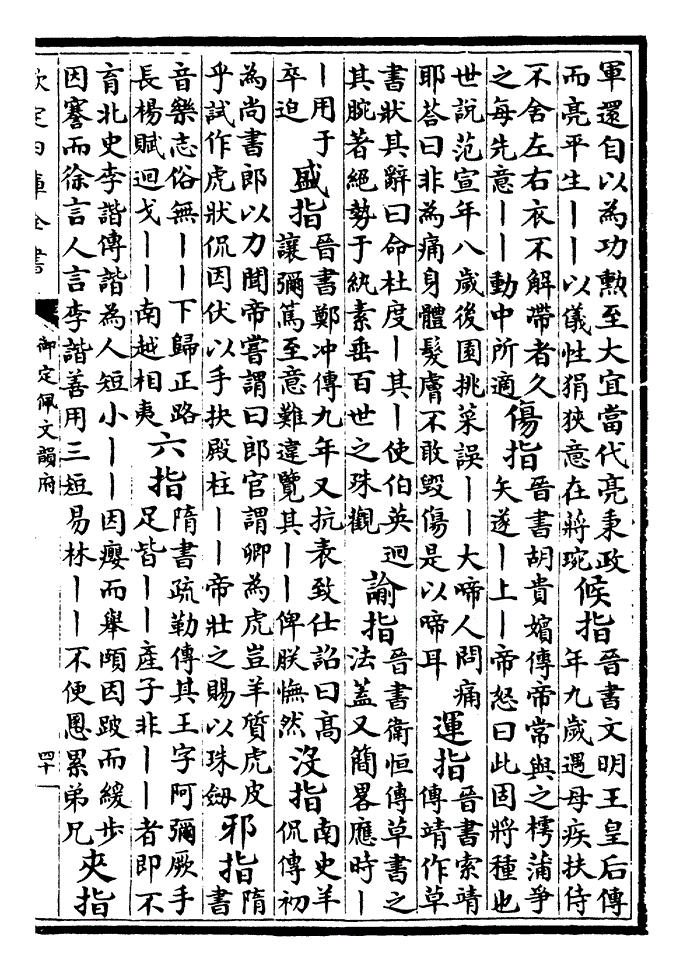 軍還自以為功勲至大宜當代亮秉政
而亮平生丨丨以儀性狷狹意在蔣琬
候指
晉書文明王皇后傳
年九歲遇母疾扶侍
不舍左右衣不解帶者久
之每先意丨丨動中所適
傷指
晉書胡貴嬪傳帝常與之樗蒲爭
矢遂丨上丨帝怒曰此固將種也
世說范宣年八歲後園挑菜誤丨丨大啼人問痛
耶荅曰非為痛身體髮膚不敢毀傷是以啼耳
運指
晉書索靖
傳靖作草
書狀其辭曰命杜度丨其丨使伯英迴
其腕著絕勢于紈素垂百世之殊觀
諭指
晉書衛恒傳草書之
法蓋又簡畧應時丨
丨用于
卒迫
盛指
晉書鄭冲傳九年又抗表致仕詔曰髙
讓彌篤至意難違覽其丨丨俾朕憮然
沒指
南史羊
侃傳初
為尚書郎以力聞帝嘗謂曰郎官謂卿為虎豈羊質虎皮
乎試作虎狀侃因伏以手抉殿柱丨丨帝壯之賜以珠劔
邪指
隋
書
音樂志俗無丨丨下歸正路
長楊賦迴戈丨丨南越相夷
六指
隋書疏勒傳其王字阿彌厥手
足皆丨丨產子非丨丨者即不
育北史李諧傳諧為人短小丨丨因癭而舉頤因跛而緩步
因謇而徐言人言李諧善用三短易林丨丨不便恩累弟兄
夾指
欽定四庫全書
御定佩文韻府
四十